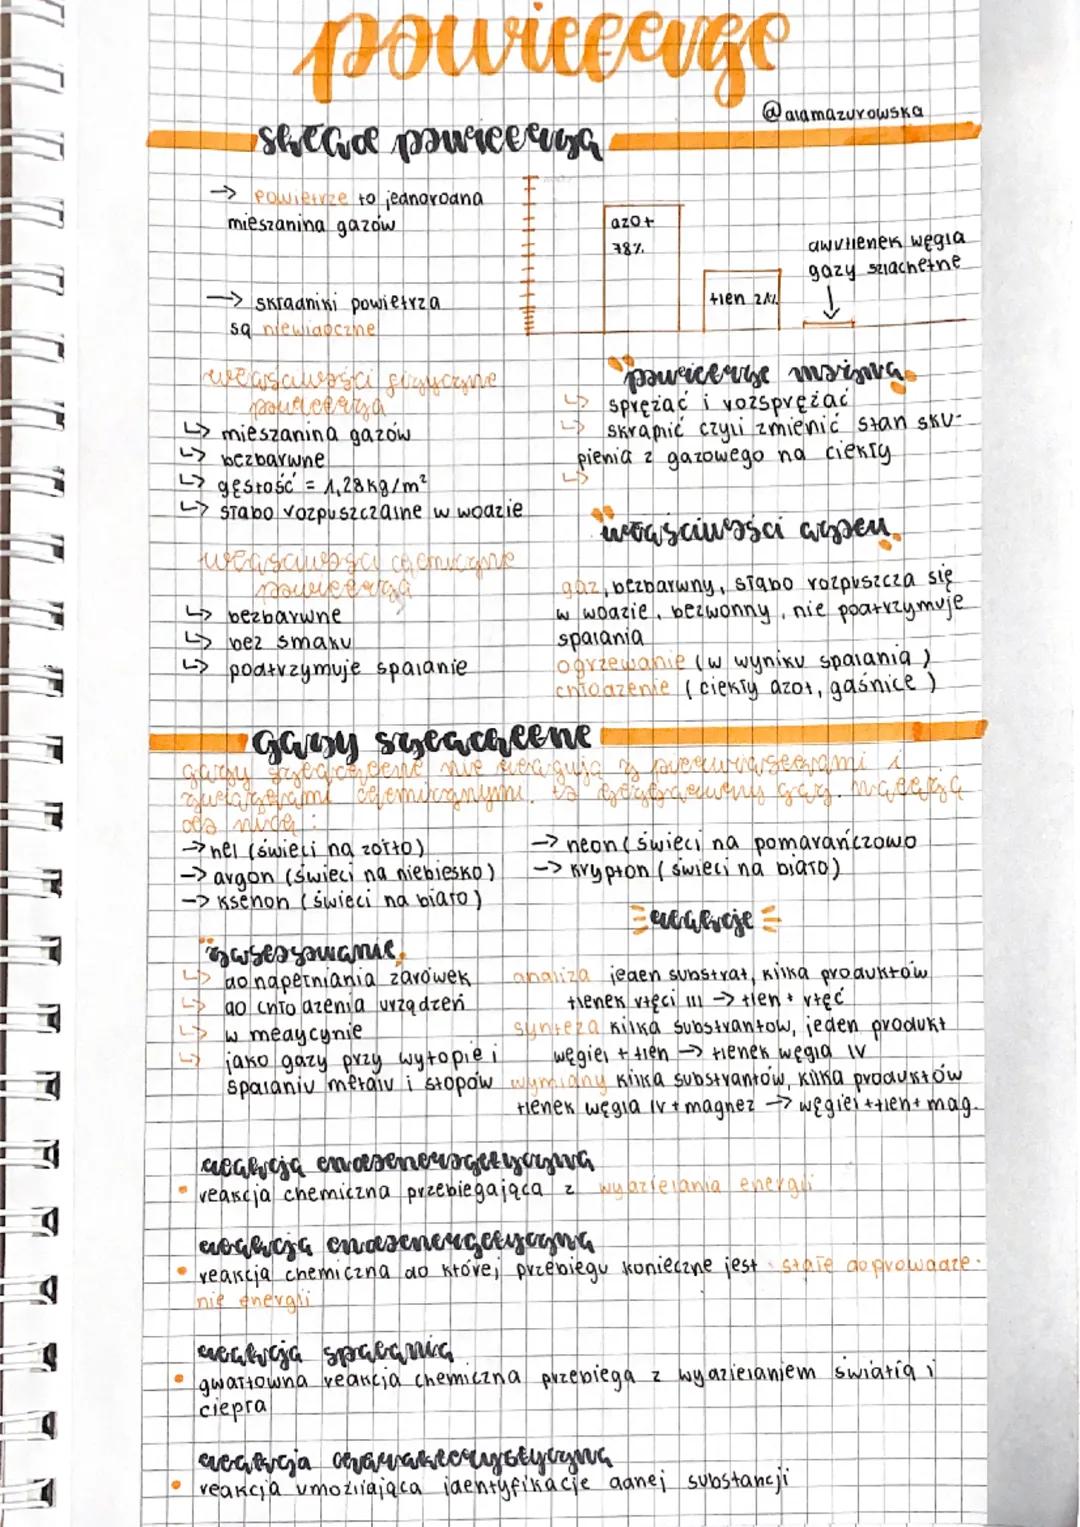 powietrze
@alamazurowska
skład powietrza
→ powietrze to jednorodna
mieszanina gazów
→ składniki powietrza
są niewidoczne
azot
78%
tlen 21%
dwutlenek węgla
gazy szlachetne
właściwości fizyczne
powietrza
↳ mieszanina gazów
↳ bezbarwne
↳ gęstość = 1,28kg/m²
↳ słabo rozpuszczalne w wodzie
właściwości chemiczne
powietrza
↳ bezbarwne
↳ bez smaku
↳ podtrzymuje spalanie
powietrze można
↳ sprężać i rozsprężać
↳ skraplić czyli zmienić stan sku-
pienia z gazowego na ciekły
↳
właściwości azotu
gaz, bezbarwny, słabo rozpuszcza się
w wodzie, bezwonny, nie podtrzymuje
spalania
ogrzewanie (w wyniku spalania)
chłodzenie (ciekły azot, gaśnice)
gazy szlachetne
gazy szlachetne nie reagują z pierwiastkami i
związkami chemicznymi, to bezbarwny gaz. należą
do nich:
→ hel (świeci na żółto)
→ argon (świeci na niebiesko)
→ ksenon (świeci na biało)
→ neon (świeci na pomarańczowo
→ krypton (świeci na biało)
zastosowanie
↳ do napełniania żarówek
↳ do chłodzenia urządzeń
↳ w medycynie
↳ jako gazy przy wytopie i
spalaniu metalu i stopów
reakcje
analiza jeden substrat, kilka produktów
tlenek rtęci III → tlen + rtęć
synteza kilka substratów, jeden produkt
węgiel + tlen → tlenek węgla IV
wymiany kilka substratów, kilka produktów
tlenek węgla IV + magnez → węgiel + tlen + mag.
reakcja endoenergetyczna
• reakcja chemiczna przebiegająca z wydzielania energii
reakcja endoenergetyczna
• reakcja chemiczna do której przebiegu konieczne jest stałe doprowadze-
nie energii
reakcja spalania
• gwałtowna reakcja chemiczna przebiega z wydzielaniem światła i
ciepła
reakcja charakterystyczna
• reakcja umożliwiająca identyfikacje danej substancji